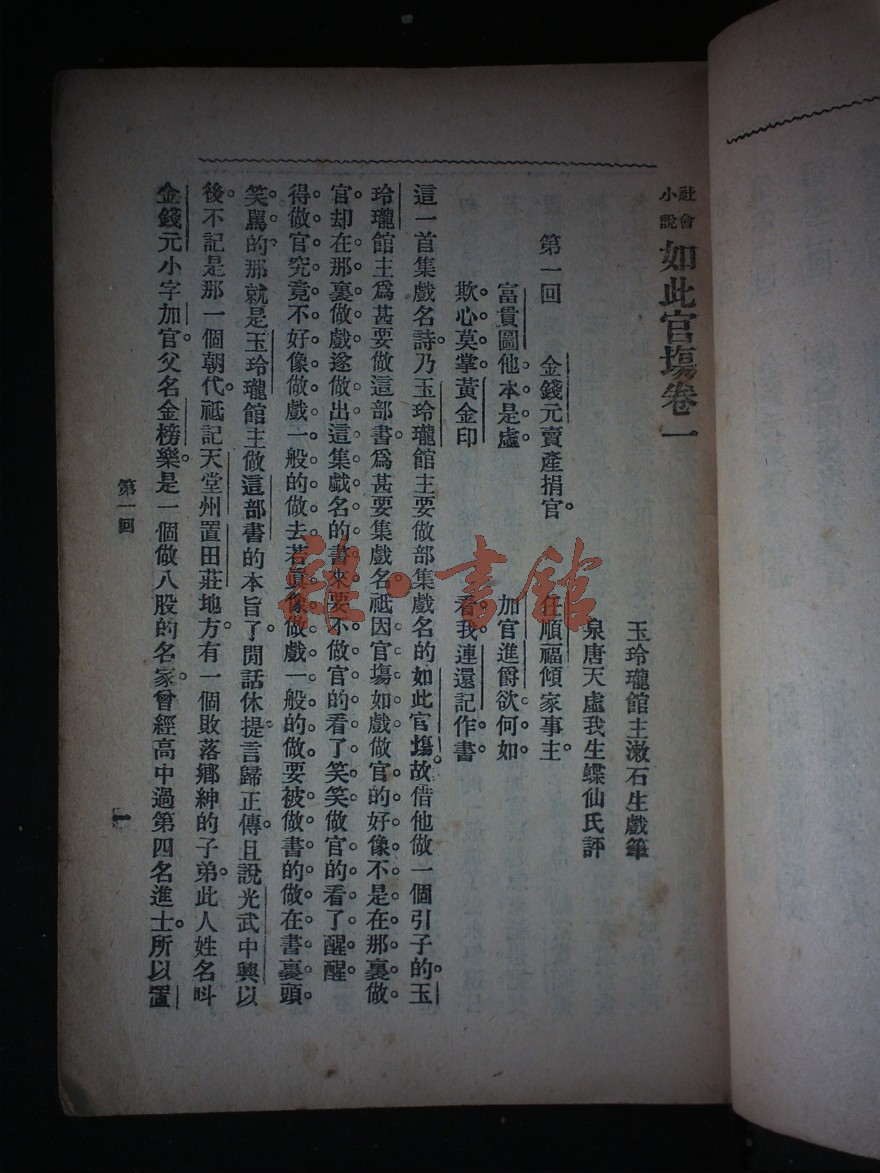 社會小說 如此官塲卷一
玉玲瓏館主漱石生戲筆
泉唐天虛我生蝶仙氏評
第一回 金錢元賣產捐官。 任順福傾家事主。
富貴圖他本是虛 加官進爵欲何如
欺心莫掌黃金印 看我連還記作書
這一首集戲名詩。乃玉玲瓏館主要做部集戲名的如此官塲。故借他做一個引子的。玉
玲瓏館主爲甚要做這部書。爲甚要集戲名。祗因官塲如戲。做官的好像不是在那裏做
官。却在那裏做戲。遂做出這集戲名的書來。要不做官的看了笑笑。做官的看了醒醒。
得做官究竟不好像做戲一般的做去。若眞像做戲一般的做。要被做書的做在書裏頭。
笑罵的。那就是玉玲瓏館主做這部書的本旨了。閒話休提。言歸正傳。且說光武中興以
後。不記是那一個朝代。祗記天堂州置田莊地方。有一個敗落鄉紳的子弟。此人姓名呌
金錢元。小字加官。父名金榜樂。是一個做八股的名家。曾經高中過第四名進士。所以置
第一回
一
雜·書館